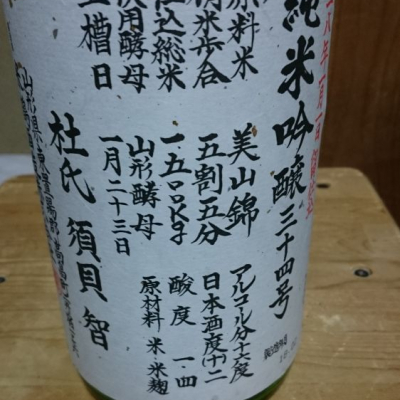 純米吟醸三十四号
原料米 美山錦
精米歩合 五割五分
仕込総米 一.五〇〇kg
使用酵母 山形酵母
上槽日 一月二十三日
杜氏 須貝 智
アルコル分十六度
日本酒度(十)二
酸度 一.四
原材料 米・米麹